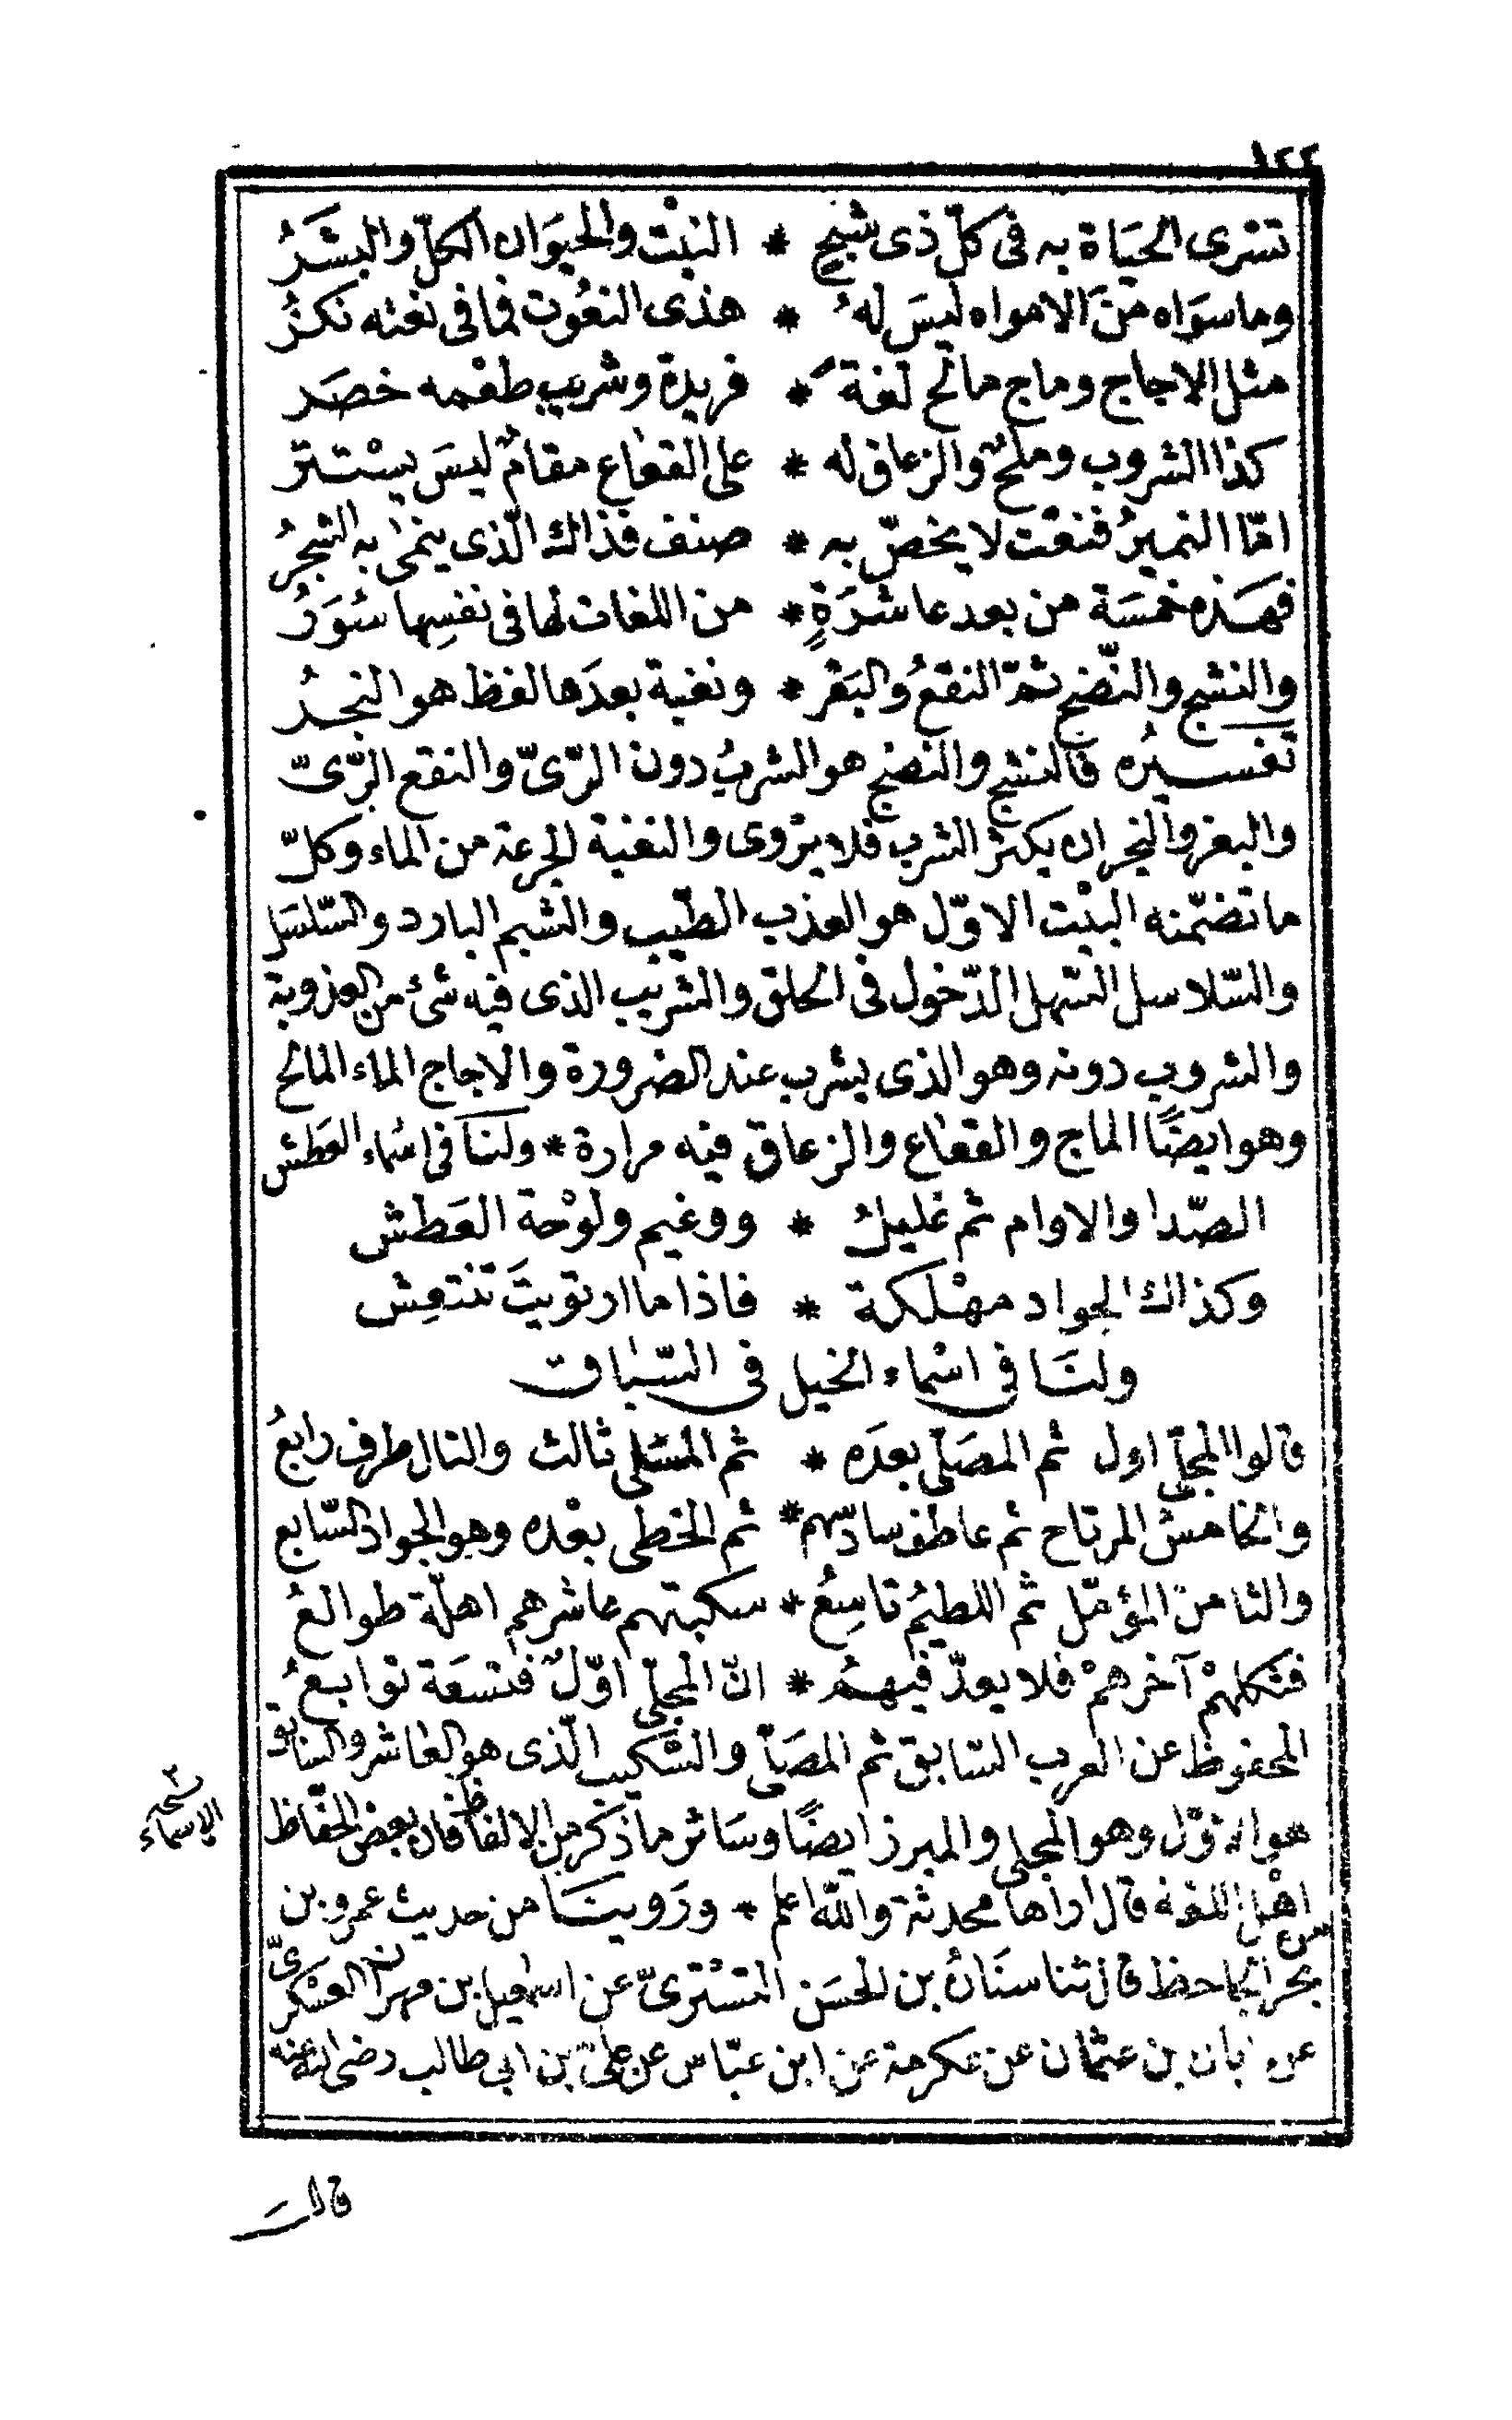 ١٤٤
تسرى الحيَاة به فى كلّ ذى شبحٍ * النبْت والحيوَان الكلّ والبشَرُ
وما سوَاه منَ الامواه ليسَ لهُ * هذى النعُوت فما فى نعته نكرُ
مثل الاجاج وماج مالح لغة * فريدة وشريب طعْمه خصَر
كذا الشروب وملحٌ والزعاق له * على القعاع مقامٌ ليسَ يسْتتر
امّا النميرُ فنعْت لا يخصّ به * صنف فذاك الّذى ينمى به الشجرُ
فهَذه خمسَة من بعد عاشرَةٍ * من اللغات لها فى نفسِها سُوَرُ
والنشح والنّضح ثمّ النقعُ والبَغْر * ونغبة بعدَها لفظ هو النجرُ
تفسيرُه فالنشح والنضح هو الشربُ دون الرّىّ والنقع الرّىّ
والبغر والنجر ان يكثر الشرب فلا يروى والنغبة الجرعة من الماء وكلّ
ما تضمّنه البيْت الاوّل هو العذب الطيّب والشبم البارد والسّلسَل
والسّلاسل السّهل الدّخول فى الحلق والشريب الذى فيه شئ من العذوبة
والشروب دونه وهو الذى يشرب عند الضرورة والاجاج الماء المالح
وهو ايضًا الماج والقعاع والزعاق فيه مرارة * ولنَا فى اسْماء العَطش
الصّدا والاوام ثم غليلُ * ووغيم ولوْحة العَطش
وكذاك الجواد مهْلكة * فاذا ما ارتويتَ تنتعِش
ولنَا فى اسْماء الخيل فى السّباق
قالوا المجلّى اول ثم المصَلّى بعدَه * ثم المسَلى ثالث والتال طرف رابعُ
والخامسُ المرتاح ثم عاطف سادسهم * ثم الخطى بعْده وهو الجواد السّابع
والثامن المؤمّل ثم اللطيمُ تاسِعُ * سكيتهم عاشرهم اهلّة طوالعُ
فشكلهمْ آخرهمْ فلا يعدّ فيهمُ * انّ المجلّى اوّلٌ فتسعَة توابعُ
المحفوظ عن العرب السّابق ثم المصَلّى والسّكيت الّذى هو العاشر والسّابق
هو الاوّل وهو المجلى والمبرز ايضًا وسَائر ما ذكر من الالفاظ فان بعض الحفّاظ
نسخة
الاسماء
اهْل اللغة قال اراها محدثة والله اعلم * ورَوينَا من حديث عمرو بن
بحر الجاحظ قال ثنا سنَانُ بن الحسَن التسْترىّ عن اسمعيل بن مهران العسْكرىّ
عن ابان بن عثمان عن عكرمة عن ابن عبّاس عن علىّ بن ابى طالب رضى الله عنه
قال